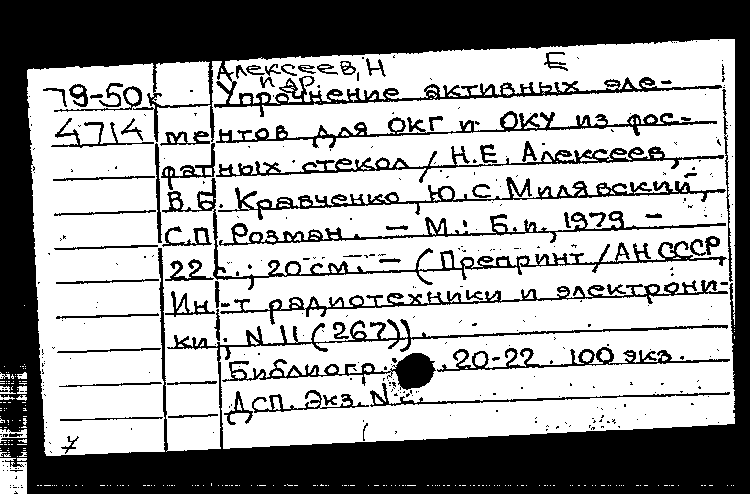 Алексеев, Н Е
и др.
79-50к Упрочнение активных эле-
4714 ментов для ОКГ и ОКУ из фос-
фатных стекол / Н.Е. Алексеев,
В.Б. Кравченко, Ю.С. Милявский,
С.П. Розман. — М.: Б.и., 1979. —
22 с.; 20 см. — (Препринт / АН СССР,
Ин-т радиотехники и электрони-
ки; N 11 (267)).
Библиогр. 20-22. 100 экз.
Дсп. Экз. N